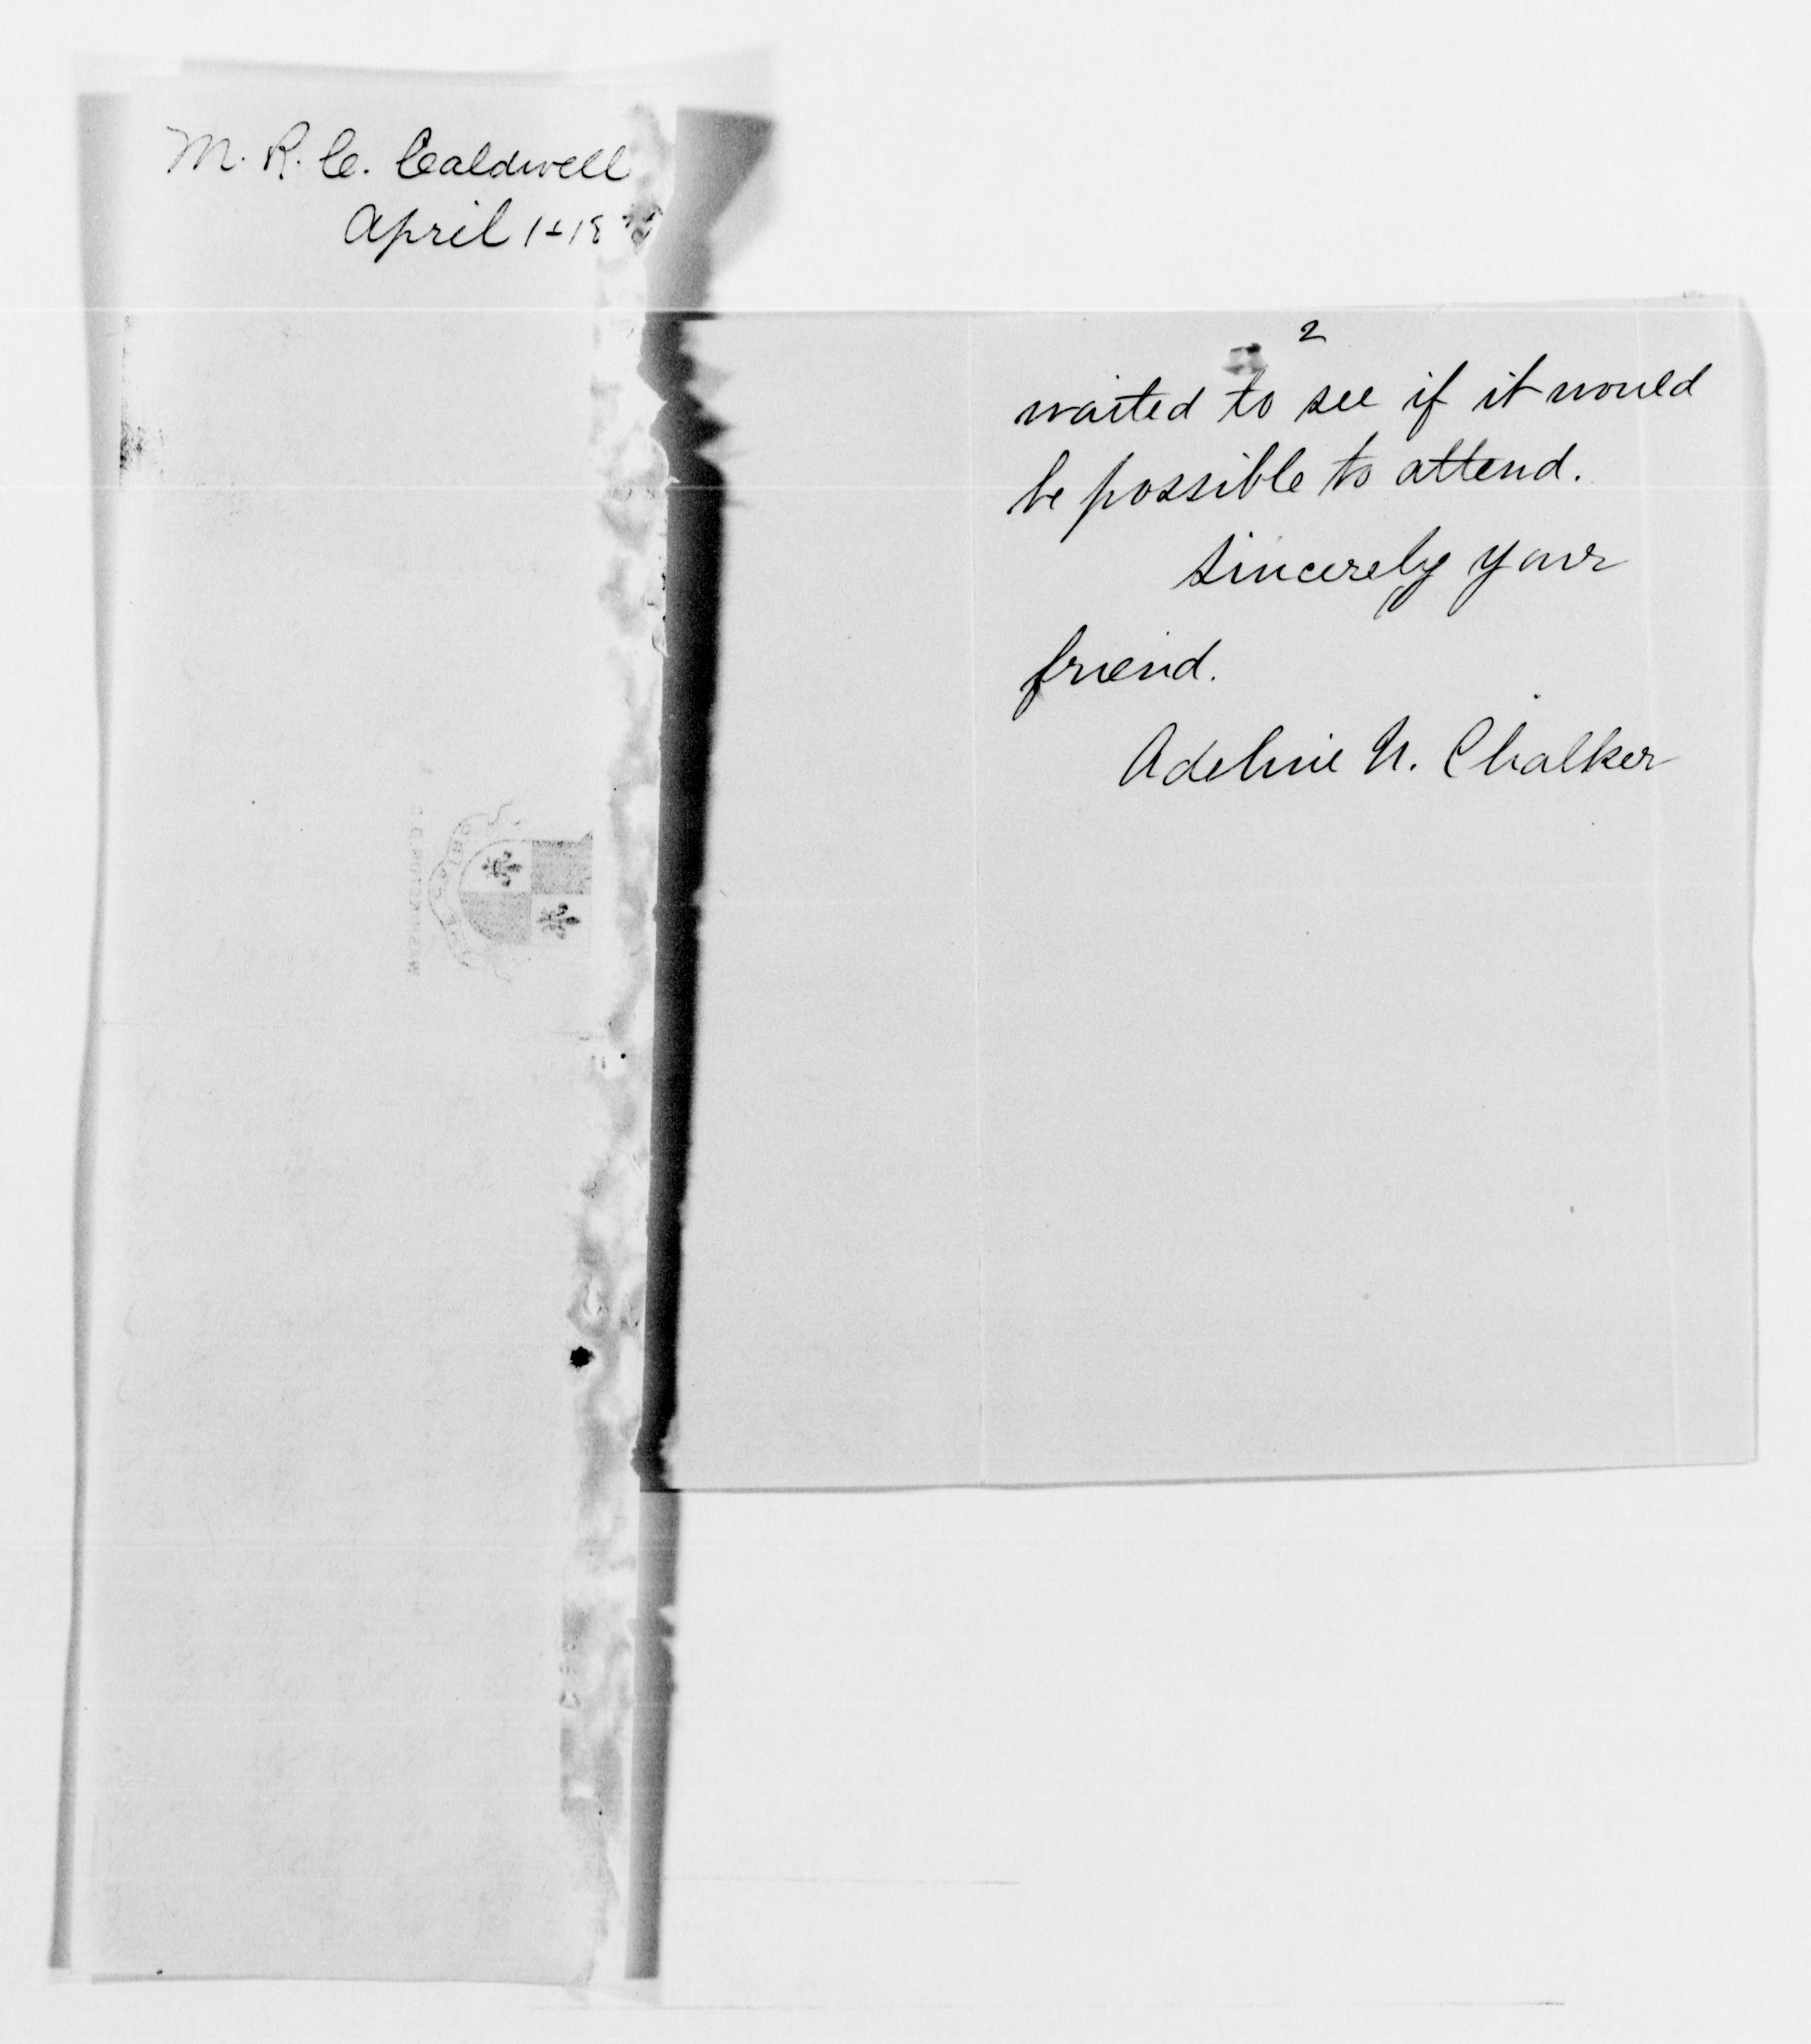 M. R. C. Caldwell
April 1st 18
2
waited to see if it would
be possible to attend.
Sincerely your
friend.
Adeline N. Chalker